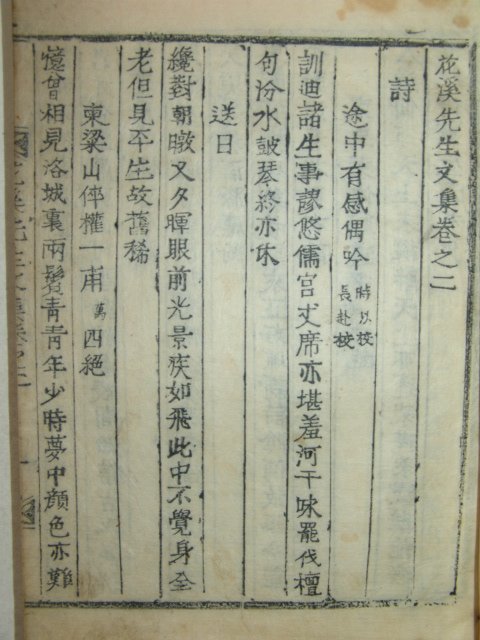 花溪先生文集卷之二
詩
途中有感偶吟 時以校長赴校
訓迪諸生事謬悠儒宮丈席亦堪羞河干味罷伐檀
句汾水鼓琴終亦休
送日
纔對朝暾又夕暉眼前光景疾如飛此中不覺身全
老但見平生故舊稀
東梁山倅權一甫 萬 四絕
憶曾相見洛城裏兩鬢青青年少時夢中顔色亦難